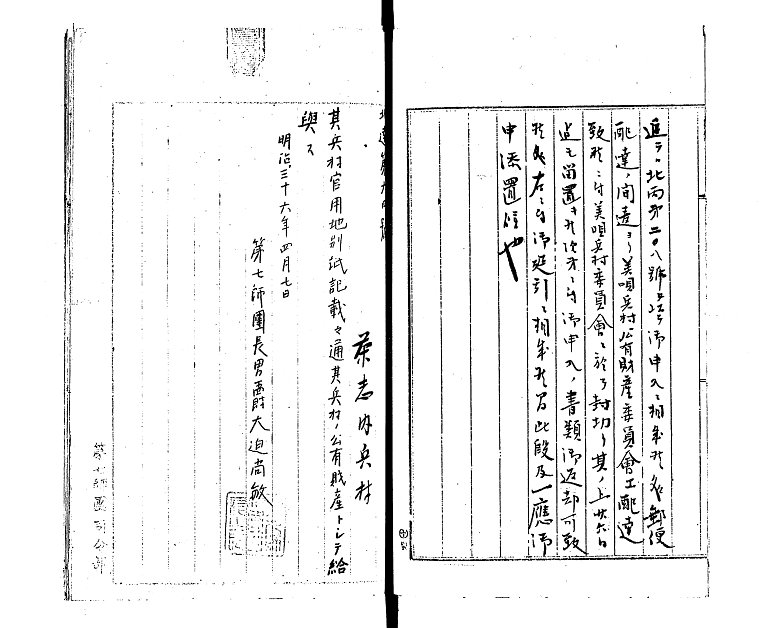 追テ北丙第二〇八號
御申入ニ相成候處郵便
配達ノ間違ヨリ美唄兵村公有財產委員會エ配達
致候ニ付美唄兵村委員會ニ於テ封切リ其ノ上
迄モ留置キ候次第ニ付御申入ノ書類御返却可致
候處右ニ付御延引ニ相成候間此段及一應御
申添置候也
茶志内兵村
其兵村官用地別紙記載之通其兵村ノ公有財產トシテ給
與ス
明治三十六年四月七日
第七師團長男爵大迫尚敏
第七師團司令部